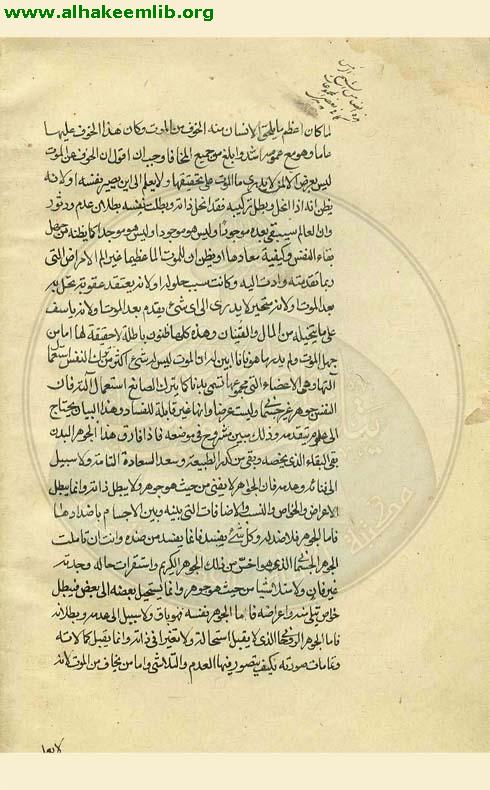 www.alhakeemlib.org
لما كان اعظم ما يلحق الانسان منه الخوف من الموت وكان هذا الخوف عليها
عاما وهو مع عمومه اشد وابلغ من جميع المخاوف وجب ان اقول ان الخوف من الموت
ليس يعرض الا لمن لا يدرى ما الموت على حقيقتها ولا يعلم الى اين يصير بنفسه او لانه
يظن انه اذا انحل وبطل تركيبه فقد انحل ذاته وبطلت نفسه بطلان عدم ودثور
وان العالم سيبقى بعده موجودا وليس هو موجودا وليس هو موجدا كما يظنه من جهل
بقاء النفس وكيفية معادها او يظن ان للموت الما عظيما غير الم الامراض التى
ربما تقدمته وادت اليه وكانت سبب حلوله او لانه يعتقد عقوبة تحل به
بعد الموت او لانه متحير لا يدرى الى اى شئ يقدم بعد الموت او لانه ياسف
على ما يتخيله من المال والقينان وهذه كلها ظنون باطلة لا حقيقة لها اما من
جهل الموت ولم يدر ما هو فانا ابين له ان الموت ليس له شئ اكثر من ترك النفس استعمال
التها وهى الاعضاء التى مجموعها تسمى بدنا كما يترك الصانع استعمال آلته فان
النفس جوهر غير جسمانى وليست عرضا وانها غير قابلة للفساد وهذا البيان يحتاج
الى علوم تتقدمه وذلك مبين مشروح فى موضعه فاذا فارق هذا الجوهر البدن
بقى البقاء الذى يخصه ونقى من كدر الطبيعة وسعد السعادة التامة ولا سبيل
الى فنائه وعدمه فان الجوهر لا يفنى من حيث هو جوهر ولا يبطل ذاته وانما يبطل
الاعراض والخواص والنسب والاضافات التى بينه وبين الاجسام باضدادها
فاما الجوهر فلا ضد له وكل شئ يفسد فانما يفسد من ضده وانت ان تاملت
الجوهر الجسمانى الذى هو اخس من ذلك الجوهر الكريم واستقرات حاله وجدته
غير فان ولا متلاشيا من حيث هو جوهر وانما يستحيل بعضه الى بعض فتبطل
خواص شئ منه واعراضه فاما الجوهر نفسه فهو باق ولا سبيل الى عدمه وبطلانه
فاما الجوهر الروحانى الذى لا يقبل استحالة ولا تغيرا فى ذاته وانما يقبل كمالاته
وتمامات صورته فكيف يتصور فيها العدم والتلاشى واما من يخاف من الموت لانه
لا يعلم